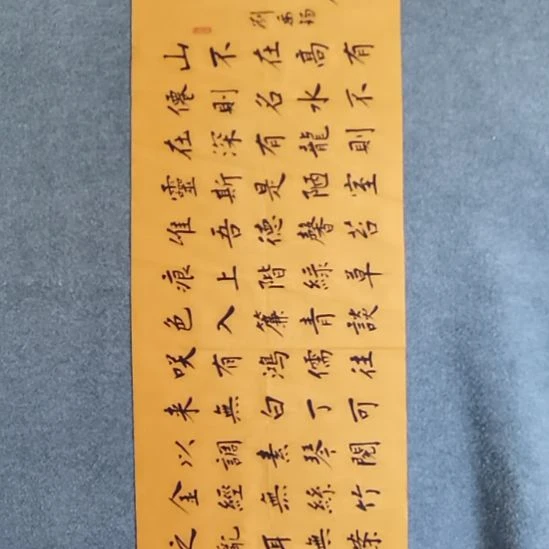 劉禹錫
山不在高有
僊則名水不
在深有龍則
靈斯是陋室
惟吾德馨苔
痕上階綠草
色入簾青談
咲有鴻儒往
来無白丁可
以調素琴閱
金經無絲竹
之亂耳無案